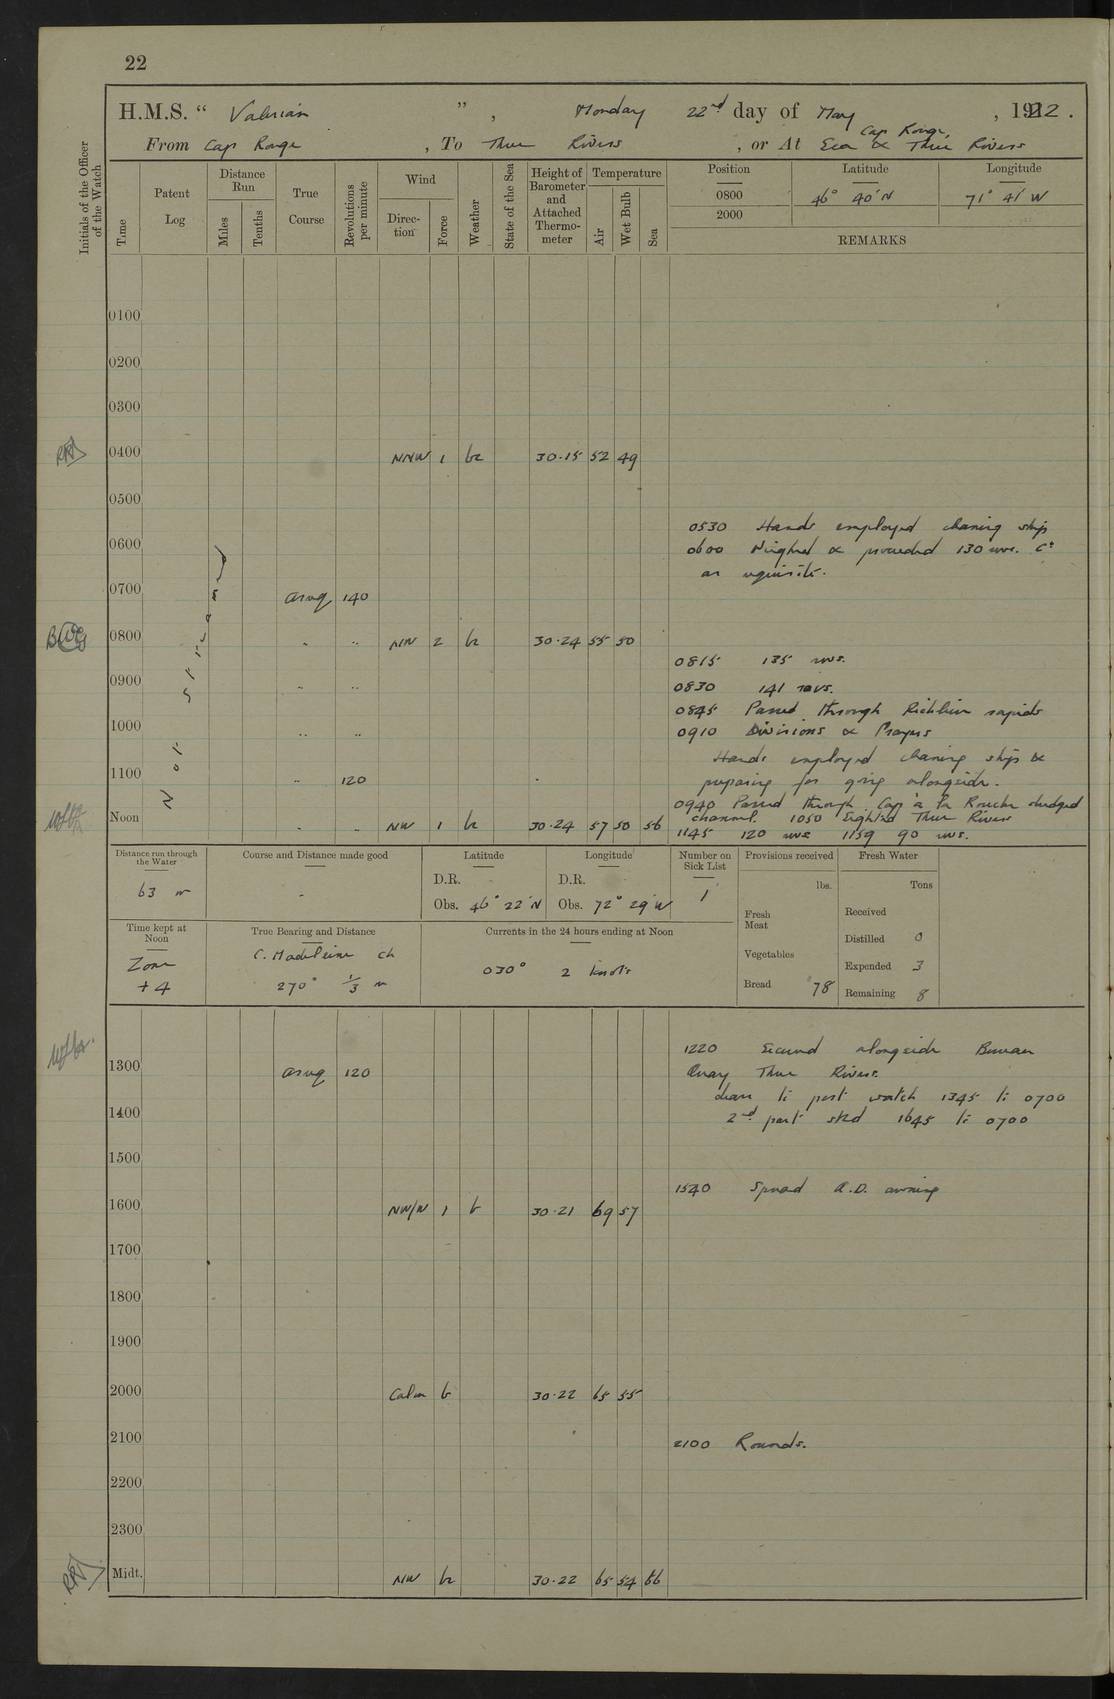 22
H.M.S. “ Valerian ” , Monday 22nd day of May , 1922 .
From Cap Rouge , To Three Rivers , or At Cap Rouge, Sea & Three Rivers
Initials of the Officer of the Watch
Time
Patent Log
Distance Run
Miles
Tenths
True Course
Revolutions per minute
Wind
Direction
Force
Weather
State of the Sea
Height of Barometer and Attached Thermometer
Temperature
Air
Wet Bulb
Sea
Position Latitude Longitude
0800 46° 40' N 71° 41' W
2000
REMARKS
Not Streamed
0100
0200
0300
0400 NNW 1 bc 30.15 52 49
0500
0530 Hands employed cleaning ship
0600 Weighed & proceeded 130 revs. Co
as requisite.
0700 asreq 140
0800 " " NW 2 bc 30.24 55 50
0815 135 revs.
0900 " "
0830 141 revs.
0845 Passed through Richlieu rapids
1000 " "
0910 Divisions & Prayers
Hands employed cleaning ship &
1100 " 120
preparing for going alongside.
0940 Passed through Cap à la Rouche dredged
channel. 1050 Sighted Three Rivers
Noon " " NW 1 bc 30.24 57 50 56
1145 120 revs 1159 90 revs.
Distance run through the Water
63 m
Course and Distance made good
-
Latitude
D.R.
Obs. 46° 22' N
Longitude
D.R.
Obs. 72° 29' W
Number on Sick List
1
Provisions received
lbs.
Fresh Meat
Vegetables
Bread 78
Fresh Water
Tons
Received
Distilled 0
Expended 3
Remaining 8
Time kept at Noon
Zone
+ 4
True Bearing and Distance
C. Madeleine Ch
270° 1/3 m
Currents in the 24 hours ending at Noon
030° 2 knots
1220 Secured alongside
Quay Three Rivers.
1300 asreq 120
leave to port watch 1345 to 0700
1400
2nd part stbd 1645 to 0700
1500
1540 Spread Q.D. awning
1600 NW/N 1 b 30.21 69 57
1700
1800
1900
2000 Calm b 30.22 65 55
2100
2100 Rounds.
2200
2300
Midt. NW bc 30.22 65 54 56